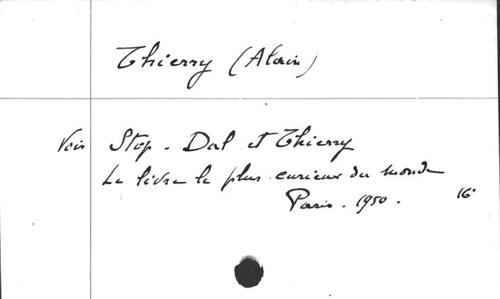 Thierry (Alain)
Voir Stop - Dal et Thierry
Le livre le plus curieux du monde
Paris - 1950 - 16°